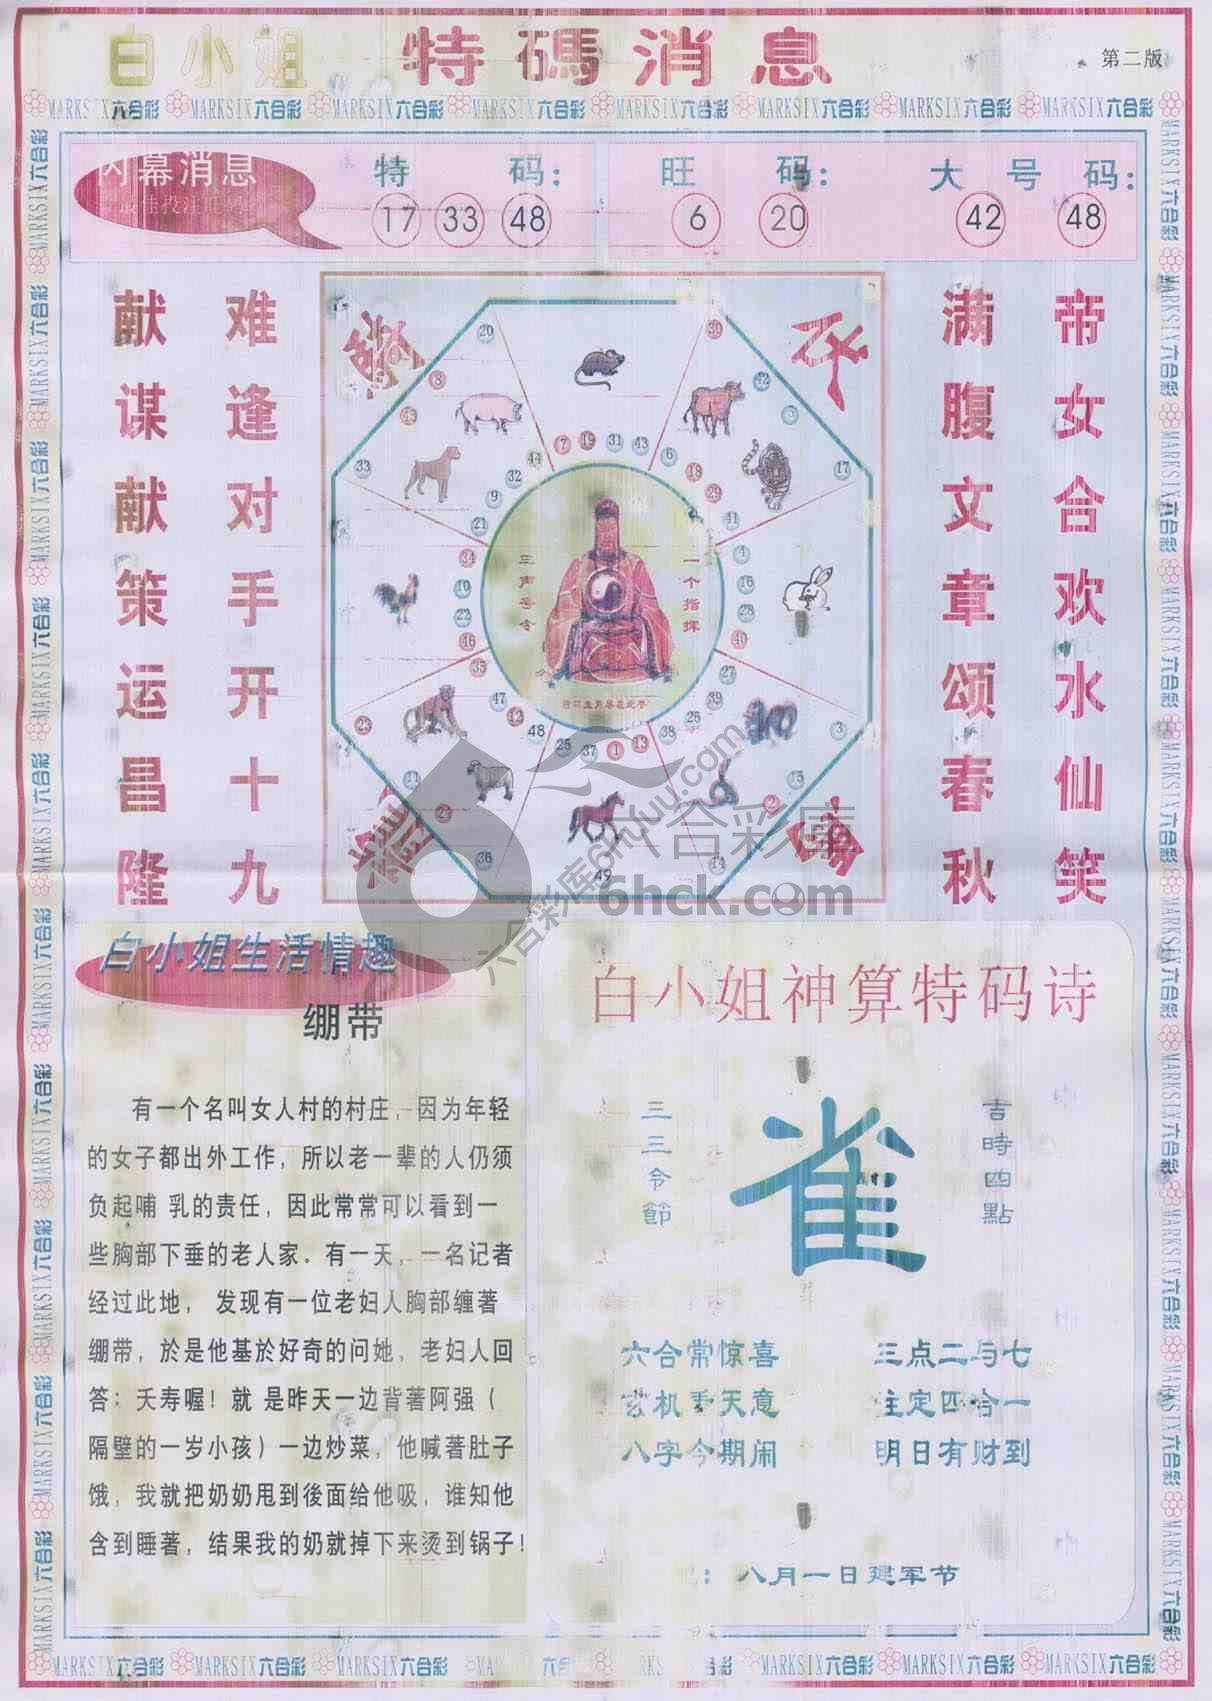 白小姐 特碼消息
第二版
MARKSIX六合彩 MARKSIX六合彩 MARKSIX六合彩 MARKSIX六合彩 MARKSIX六合彩 MARKSIX六合彩 MARKSIX六合彩 MARKSIX六合彩
内幕消息
特码： 旺码： 大号码：
17 33 48 6 20 42 48
帝女合欢水仙笑
满腹文章颂春秋
难逢对手开十九
献谋献策运昌隆
20 30
8 42
45 5
33 17
7 19 31 43
44 6
32 18
9 29
21 41
34 4
10 16
22 28
46 40
35 27
47 39
12 26
48 38
25 37 1 13
23 3
11 15
24 2
36 14
49
一个指挥
三声号令
六合彩库
6hck.com
白小姐生活情趣
绷带
有一个名叫女人村的村庄，因为年轻
的女子都出外工作，所以老一辈的人仍须
负起哺 乳的责任，因此常常可以看到一
些胸部下垂的老人家．有一天，一名记者
经过此地， 发现有一位老妇人胸部缠著
绷带，於是他基於好奇的问她，老妇人回
答：夭寿喔！就 是昨天一边背著阿强（
隔壁的一岁小孩）一边炒菜，他喊著肚子
饿，我就把奶奶甩到後面给他吸，谁知他
含到睡著，结果我的奶就掉下来烫到锅子！
白小姐神算特码诗
三三令節
雀
吉時四點
六合常惊喜 三点二与七
玄机看天意 主定四合一
八字今期闹 明日有财到
：八月一日建军节
MARKSIX六合彩 MARKSIX六合彩 MARKSIX六合彩 六合彩 MARKSIX六合彩 MARKSIX六合彩 MARKSIX六合彩